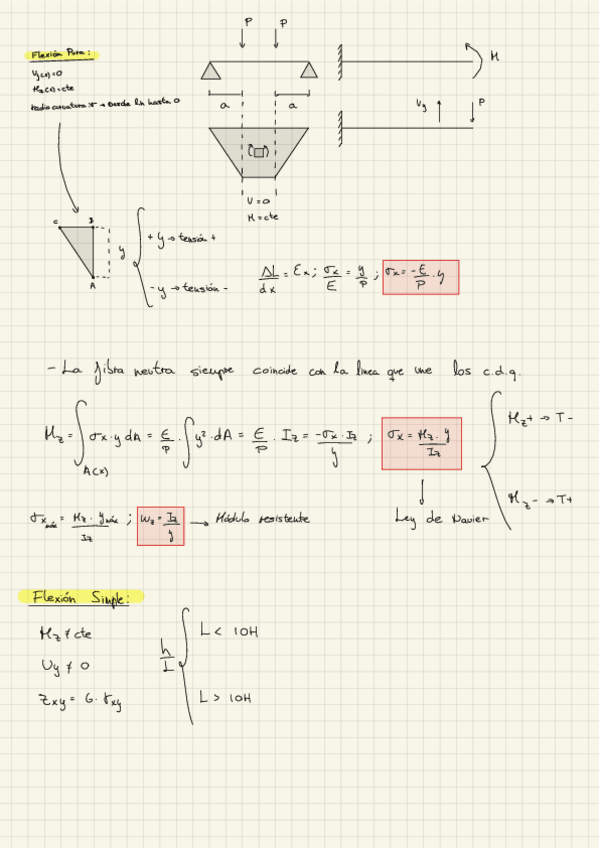 P P
Flexión Pura:
R M
Vy(x)=0
Mz(x)=cte
radio curvatura: r → Desde ln hasta 0
a a
Vy P
V=0
M=cte
C B
y
A
+ y → tensión +
- y → tensión -
ΔL/dx = εx; σx/E = y/ρ; σx = -E/ρ · y
- La fibra neutra siempre coincide con la linea que une los c.d.g.
Mz = ∫A(x) σx · y dA = E/ρ · ∫y² · dA = E/ρ · Iz = -σx · Iz/y; σx = Mz · y/Iz
Mz+ → T-
Mz- → T+
σx máx = Mz · y máx/Iz; Wz = Iz/y → Módulo resistente
Ley de Navier
Flexión Simple:
Mz ≠ cte
Vy ≠ 0
τxy = G · γxy
h/L
L < 10H
L > 10H